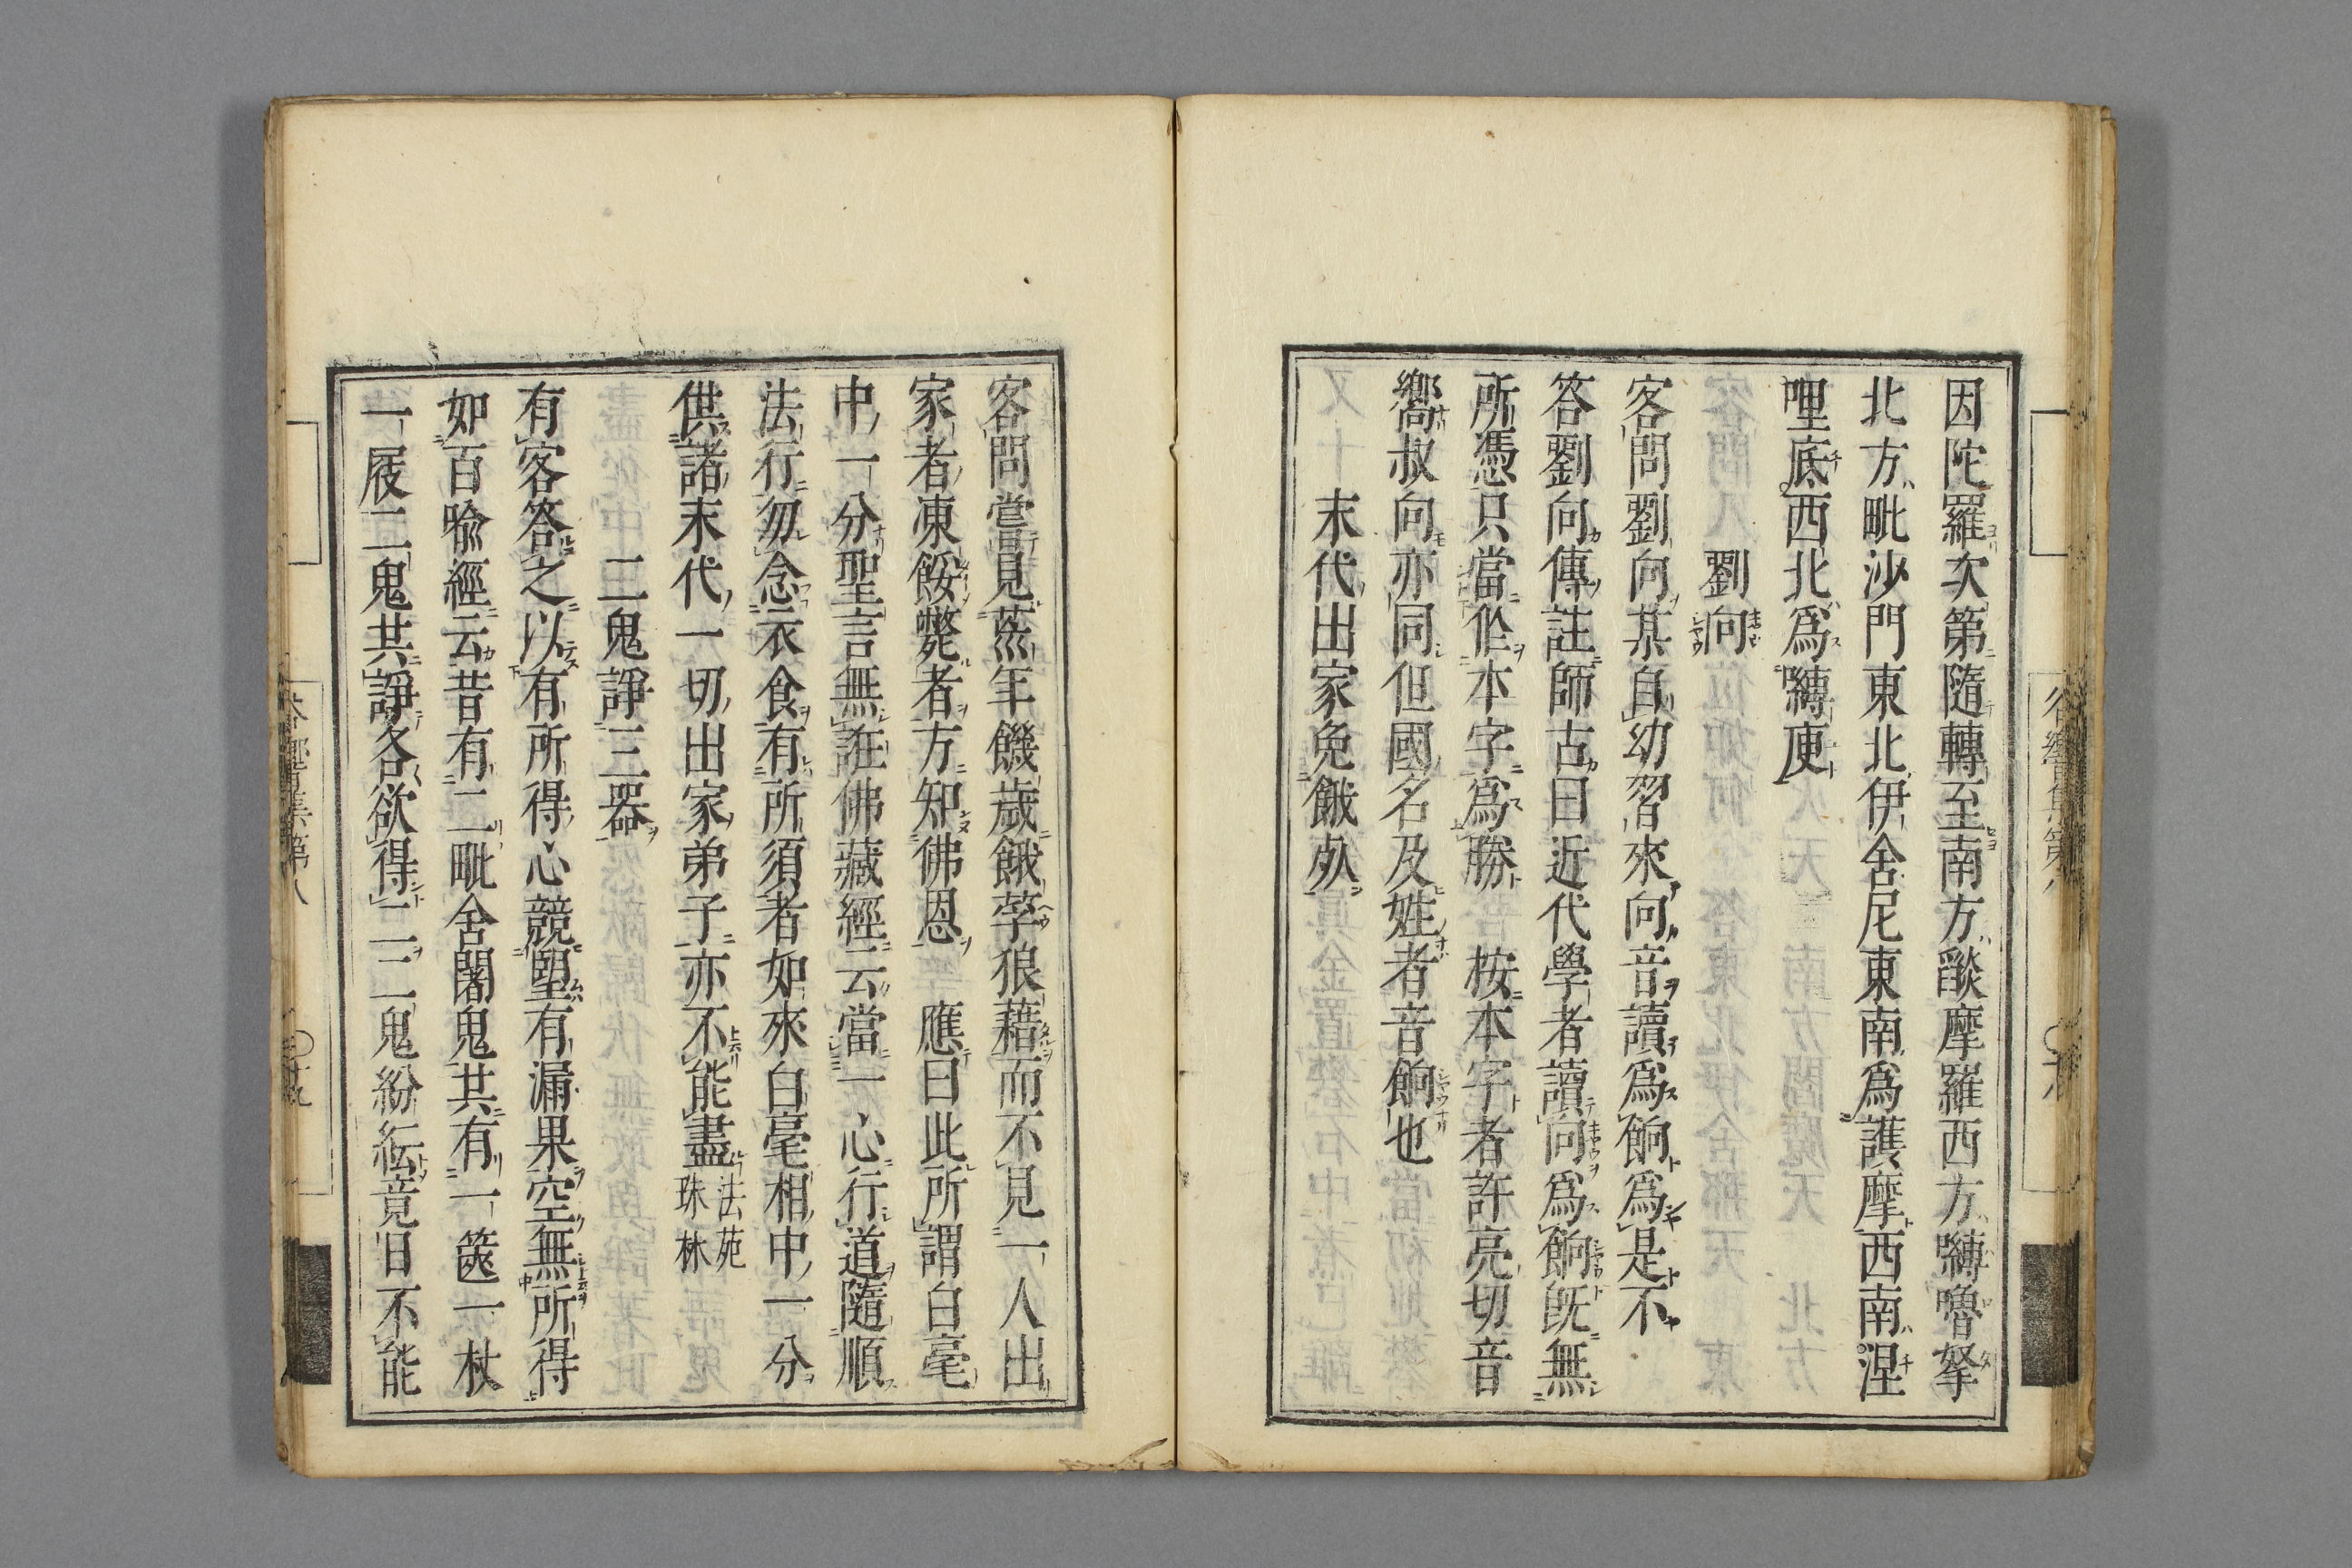 因陀羅次第隨轉至南方燄摩羅西方嚩嚕拏
北方毗沙門東北伊舍尼東南爲護摩西南涅
哩底西北爲嚩庾
劉向
客問劉向某自幼習來向音讀爲餉爲是不
答劉向傳註師古曰近代學者讀向爲餉既無
所憑只當依本字爲勝 按本字者許亮切音
嚮叔向亦同但國名及姓者音餉也
末代出家免餓
客問嘗見荒年饑歲餓莩狼藉而不見一人出
家者凍餒斃者方知佛恩 應曰此所謂白毫
中一分聖言無誑佛藏經云當一心行道隨順
法行勿念衣食有所須者如來白毫相中一分
供諸末代一切出家弟子亦不能盡法苑珠林
二鬼諍三器
有客答之以有所得心競望有漏果空無所得
如百喻經云昔有二毗舍闍鬼共有一篋一杖
一屐二鬼共諍各欲得二二鬼紛紜竟日不能
谷響集第八
谷響集第八